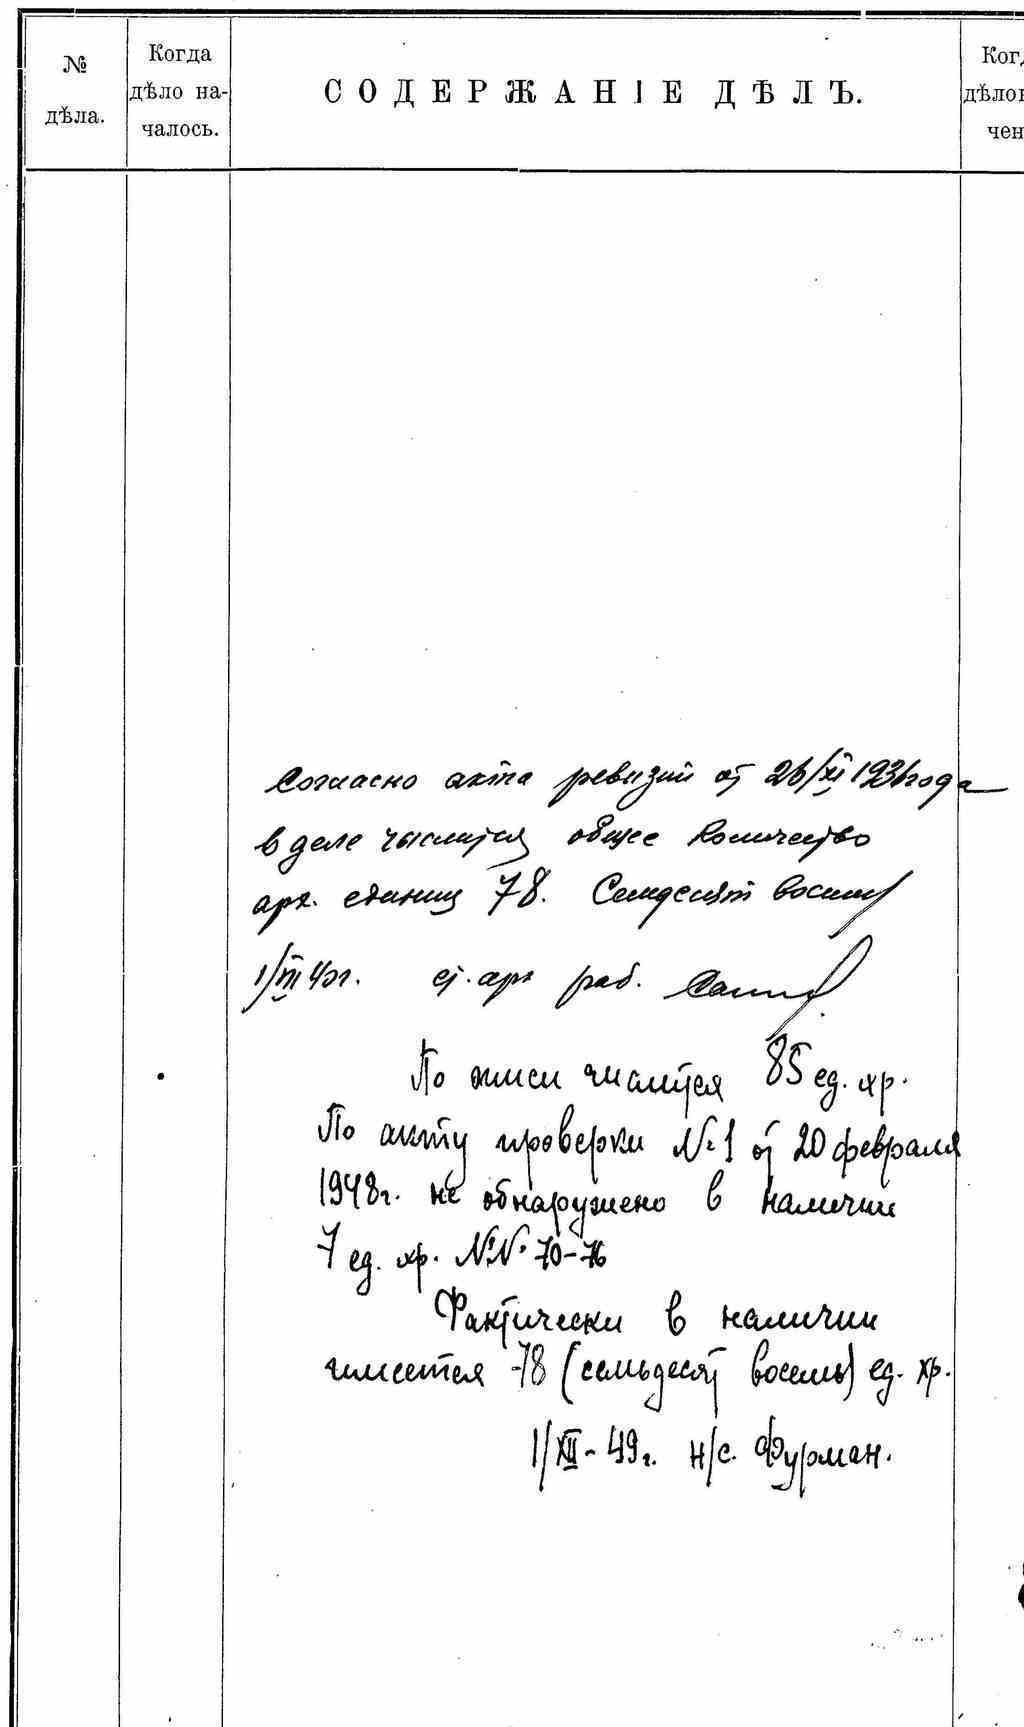 №
дѣла.
Когда
дѣло на-
чалось.
СОДЕРЖАНІЕ ДѢЛЪ.
Ког
дѣло
чен
Согласно акта ревизии от 26/XI 1936 года
в деле числится общее количество
арх. единиц 78. Семдесят восемь
1/III 40г. ст. арх раб.
По описи числится 85 ед. хр.
По акту проверки №1 от 20 февраля
1948г. не обнаружено в наличии
7 ед. хр. №№ 70-76
Фактически в наличии
имеется 78 (семьдесят восемь) ед. хр.
1/XII-49г. н/с. Фурман.